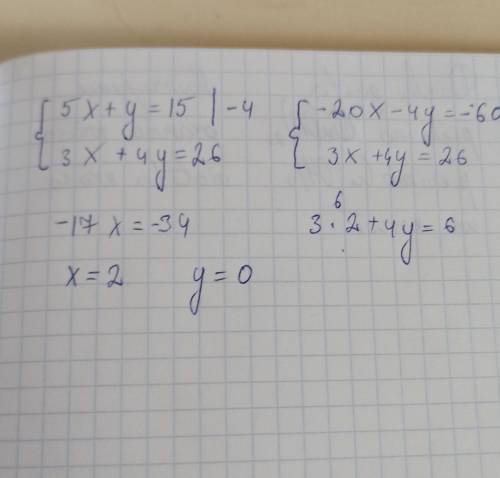 { 5x+y=15 | -4
3x+4y=26
{ -20x-4y=-60
3x+4y=26
-17x=-34
6
3·2+4y=6
x=2 y=0